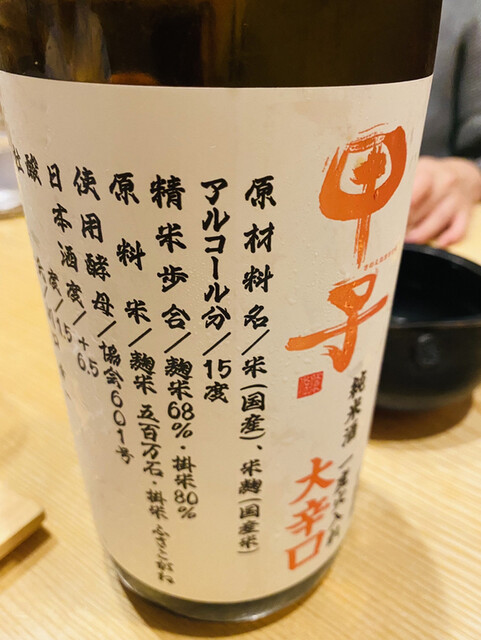 甲子
純米酒 一度火入れ
大辛口
原材料名/米(国産)、米麹(国産米)
アルコール分/15度
精米歩合/麹米68%・掛米80%
原料米/麹米 五百万石・掛米 ふさこがね
使用酵母/協会601号
日本酒度/+6.5